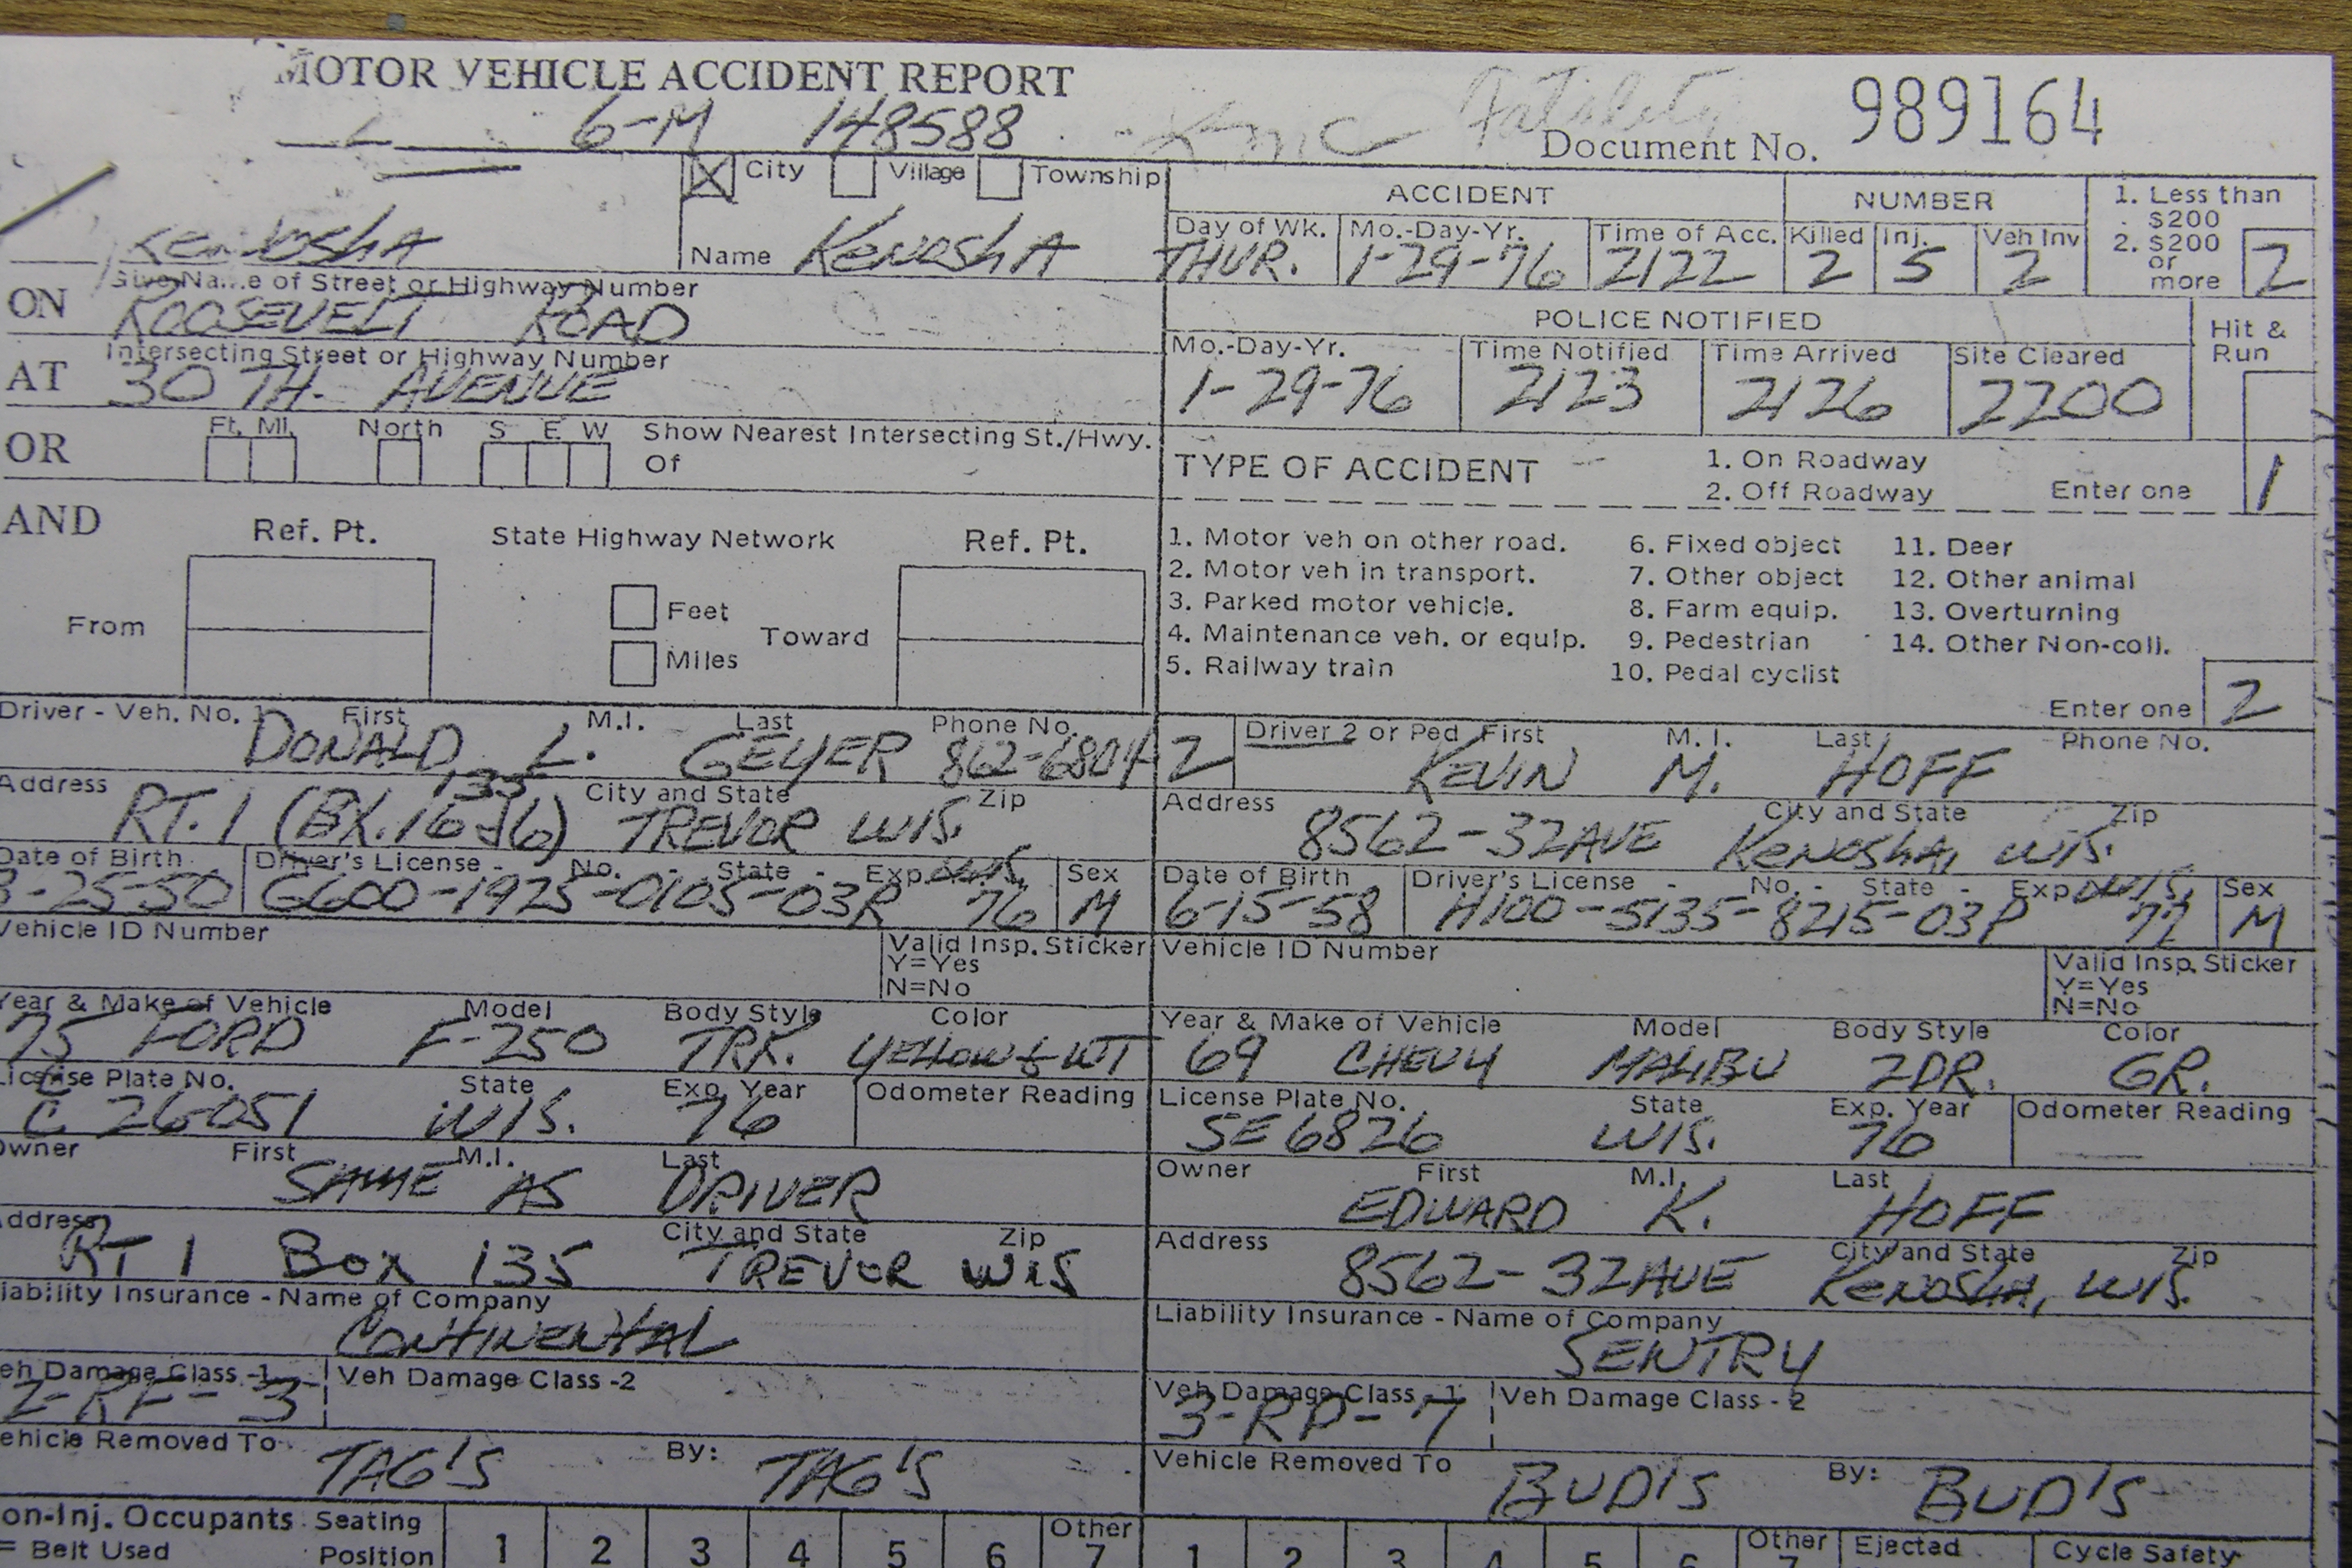 MOTOR VEHICLE ACCIDENT REPORT
Fatality
6-M 148588
KMC
Document No. 989164
City Village Township
KENOSHA
Name KENOSHA
ACCIDENT
NUMBER
Day of Wk. Mo.-Day-Yr. Time of Acc. Killed Inj. Veh Inv
THUR. 1-29-76 2122 2 5 2
1. Less than $200
2. $200 or more
2
Give Name of Street or Highway Number
ON ROOSEVELT ROAD
Intersecting Street or Highway Number
AT 30 TH. AVENUE
POLICE NOTIFIED
Hit & Run
Mo.-Day-Yr. Time Notified Time Arrived Site Cleared
1-29-76 2123 2126 2200
OR Ft. Mi. North S E W Show Nearest Intersecting St./Hwy.
Of
TYPE OF ACCIDENT 1. On Roadway
2. Off Roadway Enter one 1
AND Ref. Pt. State Highway Network Ref. Pt.
From Feet Toward
Miles
1. Motor veh on other road. 6. Fixed object 11. Deer
2. Motor veh in transport. 7. Other object 12. Other animal
3. Parked motor vehicle. 8. Farm equip. 13. Overturning
4. Maintenance veh. or equip. 9. Pedestrian 14. Other Non-coll.
5. Railway train 10. Pedal cyclist
Enter one 2
Driver - Veh. No. 1 First M.I. Last Phone No.
DONALD L. GEYER 862-6804
2 Driver 2 or Ped First M. I. Last Phone No.
KEVIN M. HOFF
Address City and State Zip
135
RT. 1 TREVOR WIS.
Address City and State Zip
8562-32AVE KENOSHA, WIS.
Date of Birth Driver's License - No. - State - Exp. Sex
-25-50 G600-1925-0105-03R WIS. 76 M
Date of Birth Driver's License - No. - State - Exp. Sex
6-15-58 H100-5135-8215-03P WIS. 77 M
Vehicle ID Number Valid Insp. Sticker
Y=Yes
N=No
Vehicle ID Number Valid Insp. Sticker
Y=Yes
N=No
Year & Make of Vehicle Model Body Style Color
75 FORD F-250 TRK. YELLOW & WT
Year & Make of Vehicle Model Body Style Color
69 CHEVY MALIBU 2DR. GR.
License Plate No. State Exp. Year Odometer Reading
C 26-051 WIS. 76
License Plate No. State Exp. Year Odometer Reading
SE 6826 WIS. 76
Owner First M.I. Last
SAME AS DRIVER
Owner First M.I. Last
EDWARD K. HOFF
Address City and State Zip
RT 1 Box 135 TREVOR WIS
Address City and State Zip
8562-32AVE KENOSHA, WIS.
iability Insurance - Name of Company
CONTINENTAL
Liability Insurance - Name of Company
SENTRY
eh Damage Class -1 Veh Damage Class -2
2-RF-3
Veh Damage Class - 1 Veh Damage Class - 2
3-RP-7
ehicle Removed To By:
TAG'S TAG'S
Vehicle Removed To By:
BUD'S BUD'S
on-Inj. Occupants Seating Position 1 2 3 4 5 6 Other 7
= Belt Used
1 2 3 4 5 6 Other 7 Ejected Cycle Safety